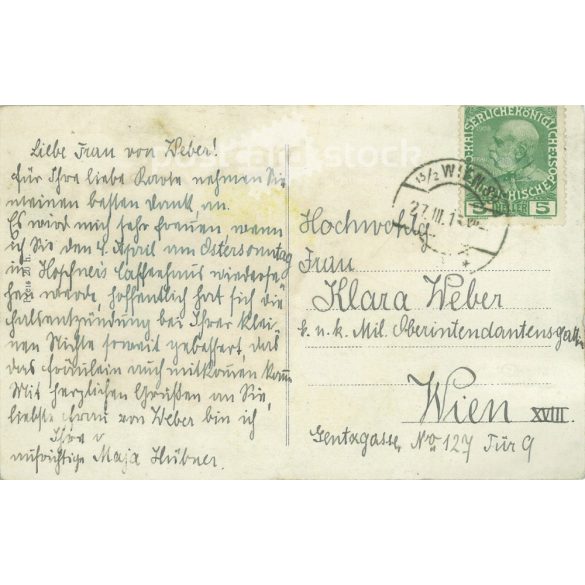 Liebe Frau von Weber!
Für Ihre liebe Karte nehmen Sie
meinen besten Dank an.
Es wird mich sehr freuen, wenn
ich Sie den 4. April am Ostersonntag
in Kaffeehaus wiederse-
hen werde, hoffentlich hat sich die
Halsentzündung bei Ihrer klei-
nen Nichte soweit gebessert, das
das Fräulein auch mitkommen kann.
Mit herzlichen Grüßen an Sie,
liebste Frau von Weber bin ich
Ihre
aufrichtige Maja Hübner.
KAISERLICHE KÖNIGLICHE ÖSTERREICHISCHE
1908
5 HELLER 5
15/2 WIEN
27.III.1
Hochwohlg.
Frau
Klara Weber
k. u. k. Mil. Oberintendantensgattin
Wien XVIII.
Gentzgasse, No 127 Tür 9
postcard stock